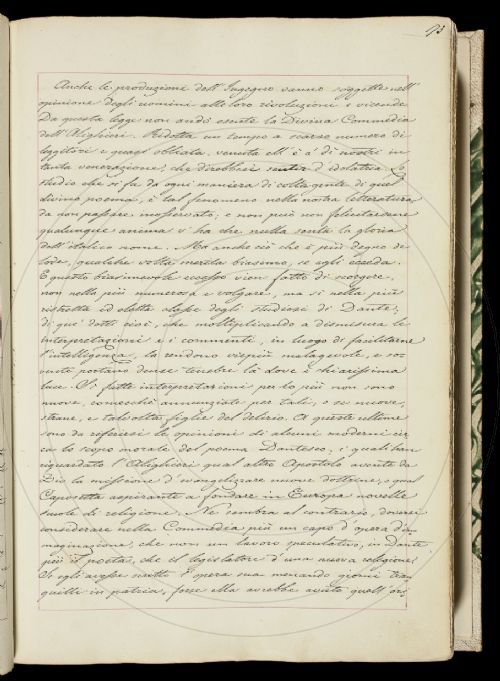 93
Anche le produzioni dell'Ingegno vanno soggette nell'
opinione degli uomini alle loro rivoluzioni e vicende
Da questa legge non andò esente la Divina Commedia
dell'Alighieri. Ridotta un tempo a scarso numero di
leggitori e quasi obliata, venuta ell'è a' dì nostri in
tanta venerazione, che direbbesi sentir d'idolatria. Lo
studio che si fa da ogni maniera di colta gente di quel
divino poema, è tal fenomeno nella nostra letteratura
da non passare inosservato; e non può non felicitarsene
qualunque anima v'ha che nella senta la gloria
dell'italico nome. Ma anche ciò che è più degno di
lode, qualche volta merita biasimo, se egli ecceda.
E questo biasimevole eccesso vien fatto di scorgere,
non nella più numerosa e volgare, ma sì nella più
ristretta ed eletta classe degli studiosi di Dante;
di que' dotti cioè, che moltiplicando a dismisura le
interpretazioni e i commenti, in luogo di facilitarne
l'intelligenza, la rendono vieppiù malagevole, e so-
vente portano dense tenebre là dove è chiarissima
luce. Sì fatte interpretazioni per lo più non sono
nuove, comecchè annunziate per tali, o se nuove,
strane, e talvolta figlie del delirio. A queste ultime
sono da riferirsi le opinioni di alcuni moderni cir-
ca lo scopo morale del poema Dantesco, i quali han
riguardato l'Allighieri qual altro Apostolo avente da
Dio la missione d'evangelizzare nuove dottrine, e qual
Caposetta aspirante a fondare in Europa novelle
scuole di religione. Ne sembra al contrario, doversi
considerare nella Commedia più un capo d'opera d'im-
maginazione, che non un lavoro speculativo, in Dante
più il poeta, che il legislatore d'una nuova religione.
Se egli avesse scritto l'opera sua menando giorni tran-
quilli in patria, forse ella avrebbe avuto quell'ori